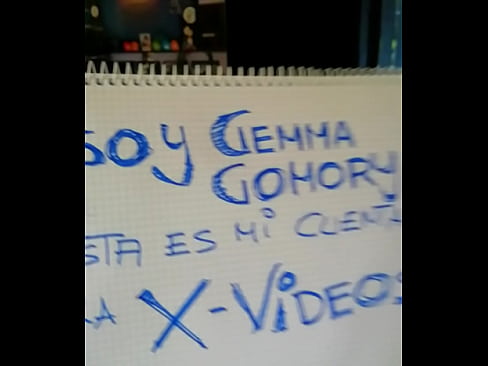 SOY GEMMA
GOMORY
STA ES Mi CUENTA
A X-ViDEOS